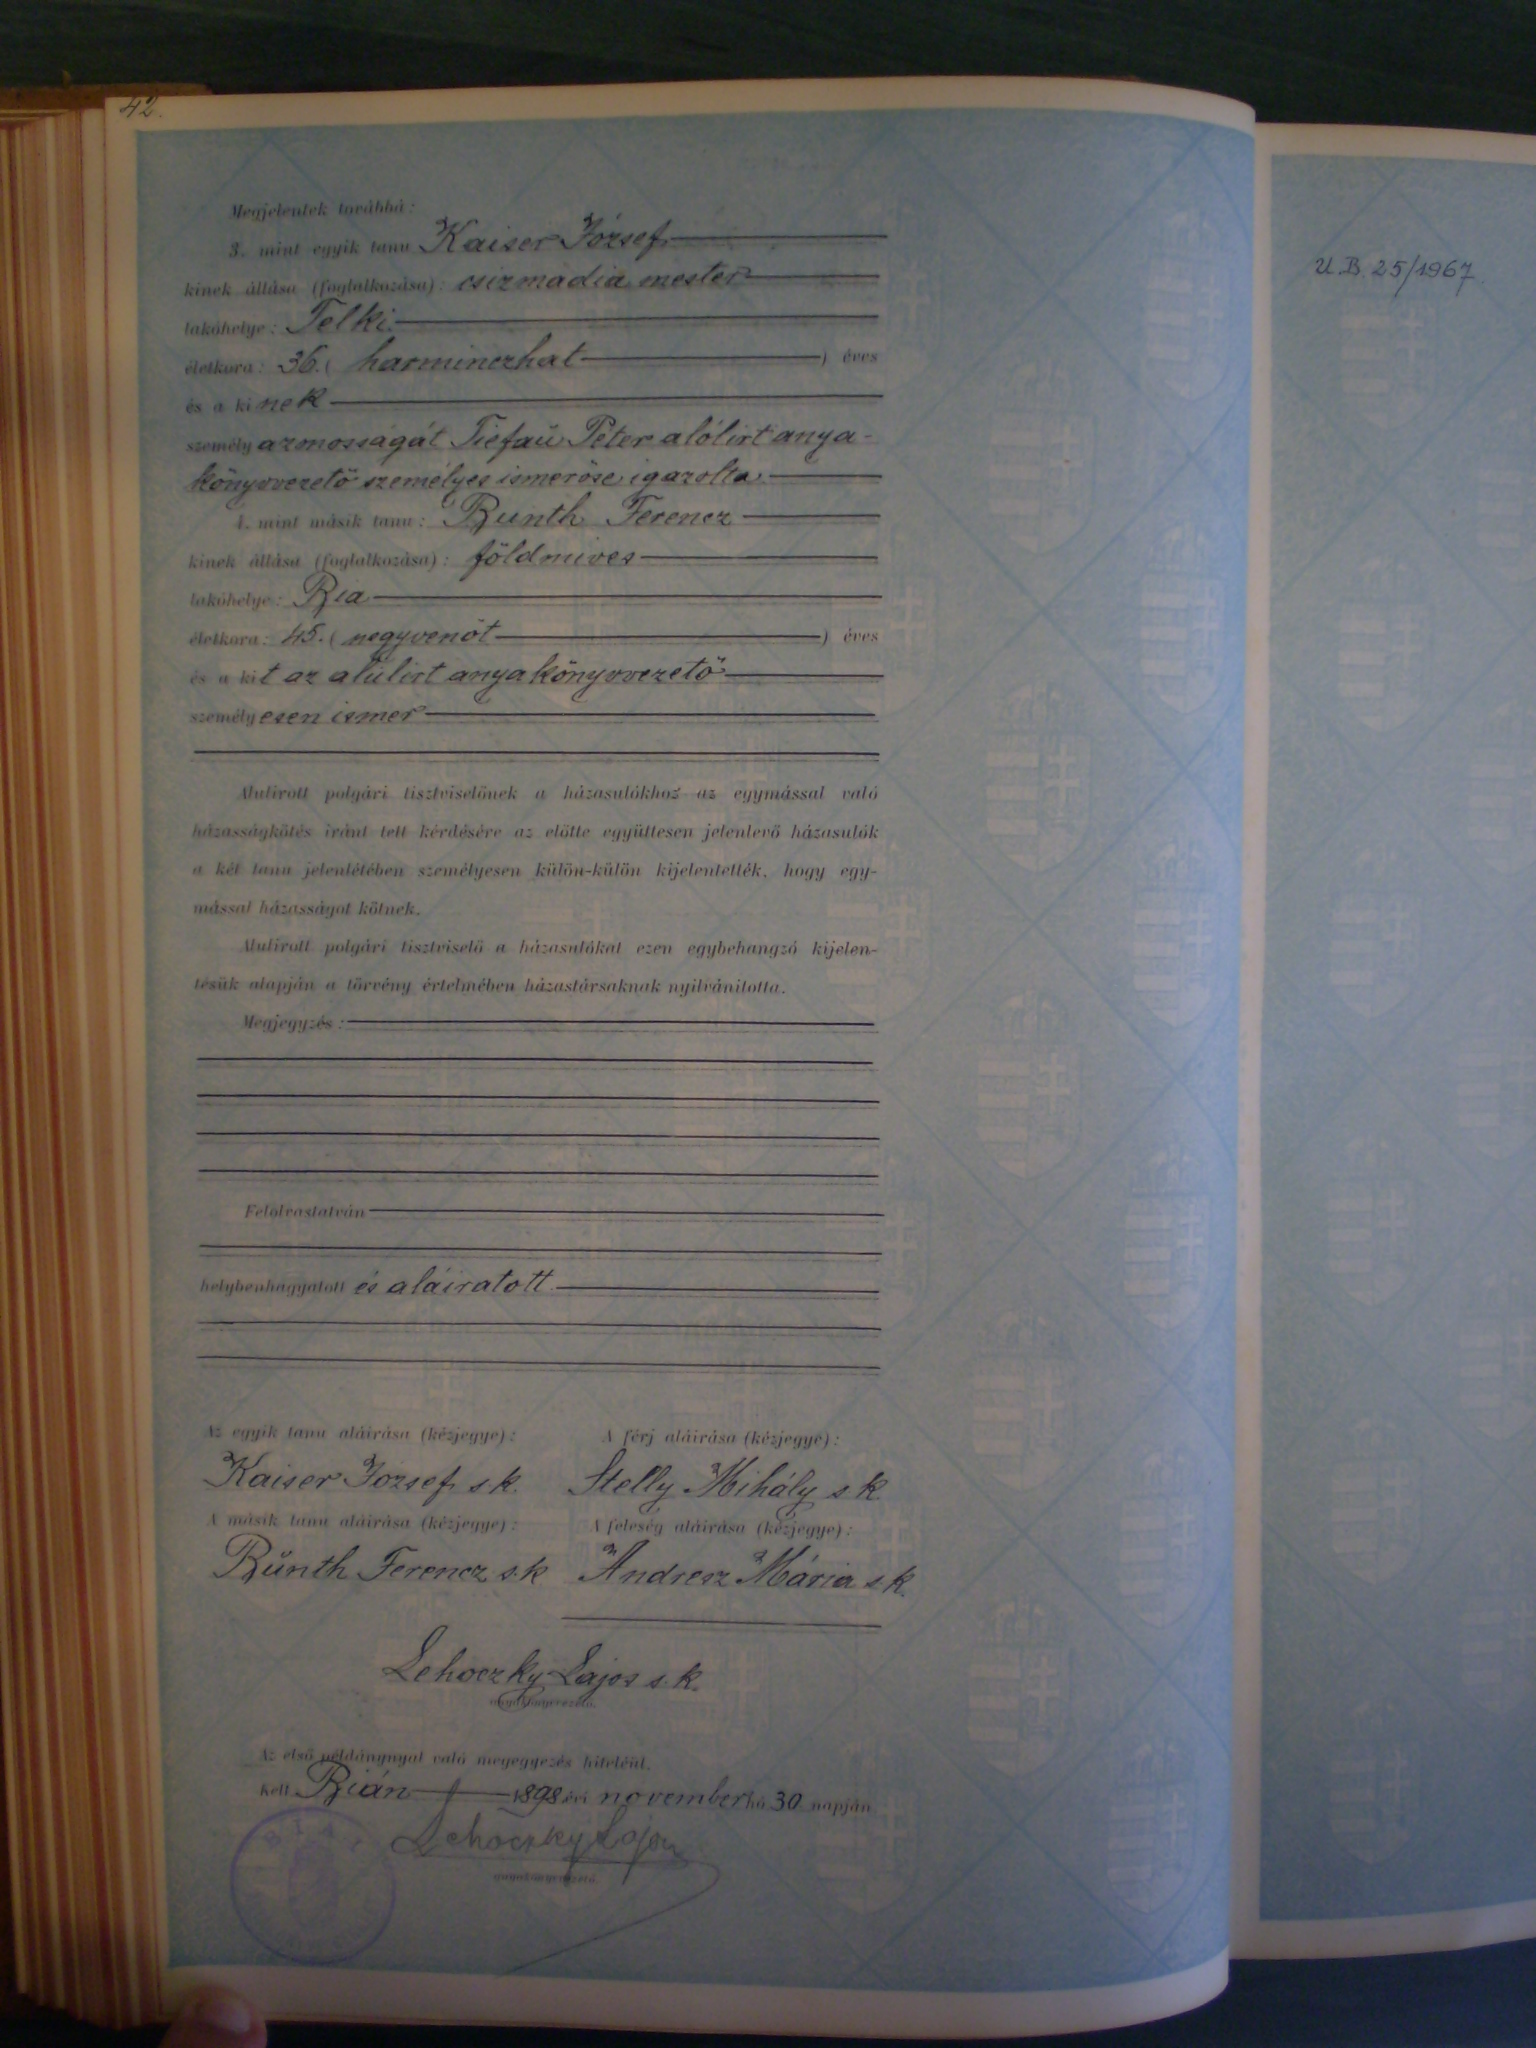 42.
Megjelentek továbbá:
3. mint egyik tanu Kaiser József
kinek állása (foglalkozása): csizmadia mester
lakóhelye: Telki.
életkora: 36. ( harminczhat ) éves
és a kinek
személyazonosságát Tiefaü Péter alólirt anya-
könyvvezető személyes ismerőse igazolta.
4. mint másik tanu: Bunth Ferencz
kinek állása (foglalkozása): földmives
lakóhelye: Bia
életkora: 45. ( negyvenöt ) éves
és a kit az alúlirt anyakönyvvezető
személyesen ismer
Alulirott polgári tisztviselőnek a házasulókhoz az egymással való
házasságkötés iránt tett kérdésére az előtte együttesen jelenlevő házasulók
a két tanu jelenlétében személyesen külön-külön kijelentették, hogy egy-
mással házasságot kötnek.
Alulirott polgári tisztviselő a házasulókat ezen egybehangzó kijelen-
tésük alapján a törvény értelmében házastársaknak nyilvánitotta.
Megjegyzés:
Felolvastatván
helybenhagyatott és aláiratott.
Az egyik tanu aláirása (kézjegye):
Kaiser József s k.
A férj aláirása (kézjegye):
Stelly Mihály s k.
A másik tanu aláirása (kézjegye):
Bŭnth Ferencz s. k
A feleség aláirása (kézjegye):
Andresz Mária s k.
Lehoczky Lajos s. k.
anyakönyvvezető.
Az első példánynyal való megegyezés hiteléül.
Kelt Bián 1898. évi november hó 30 napján
Lehoczky Lajos
anyakönyvvezető.
U. B. 25/1967.